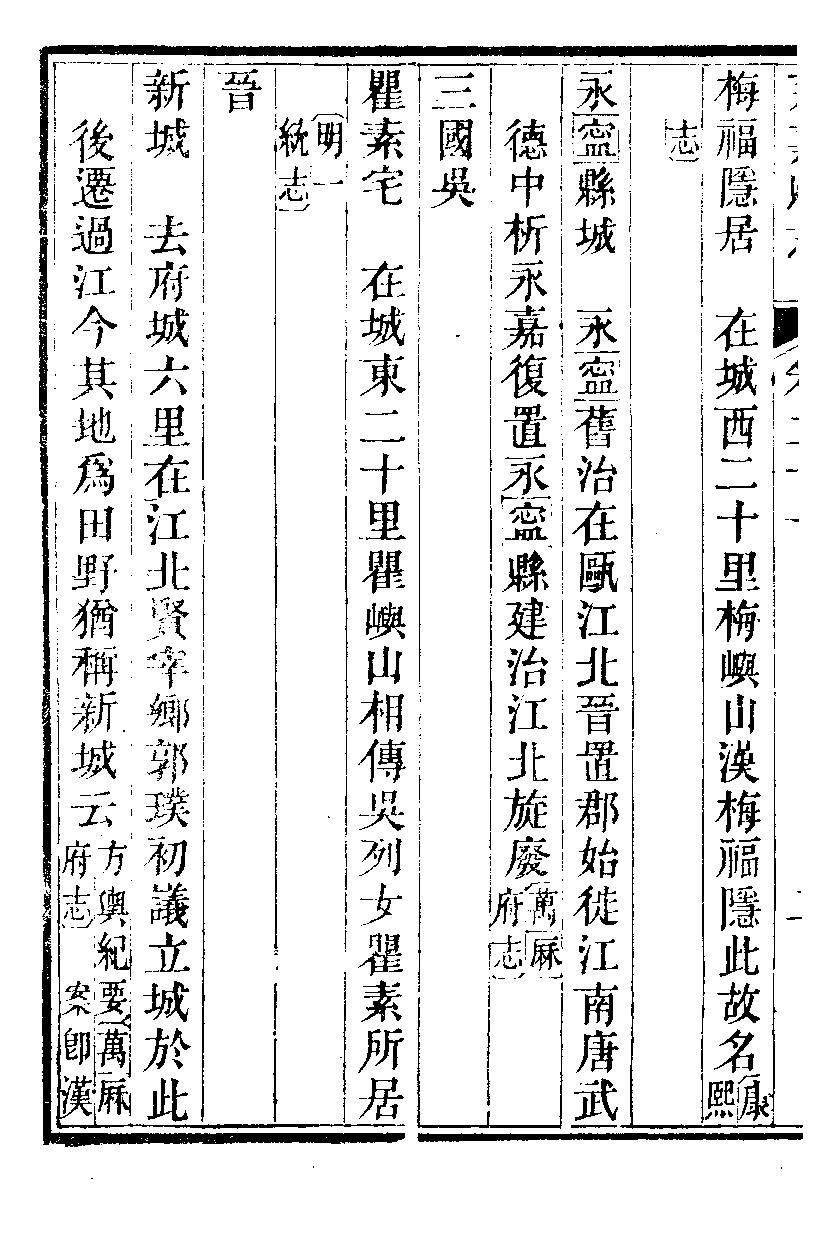 梅福隱居　在城西二十里梅嶼山漢梅福隱此故名康熙
志
永寍縣城　永寍舊治在甌江北晉置郡始徙江南唐武
德中析永嘉復置永寍縣建治江北旋廢萬厤府志
三國吳
瞿素宅　在城東二十里瞿嶼山相傳吳列女瞿素所居
明一統志
晉
新城　去府城六里在江北賢宰鄉郭璞初議立城於此
後遷過江今其地爲田野猶稱新城云方輿紀要萬厤府志　案卽漢